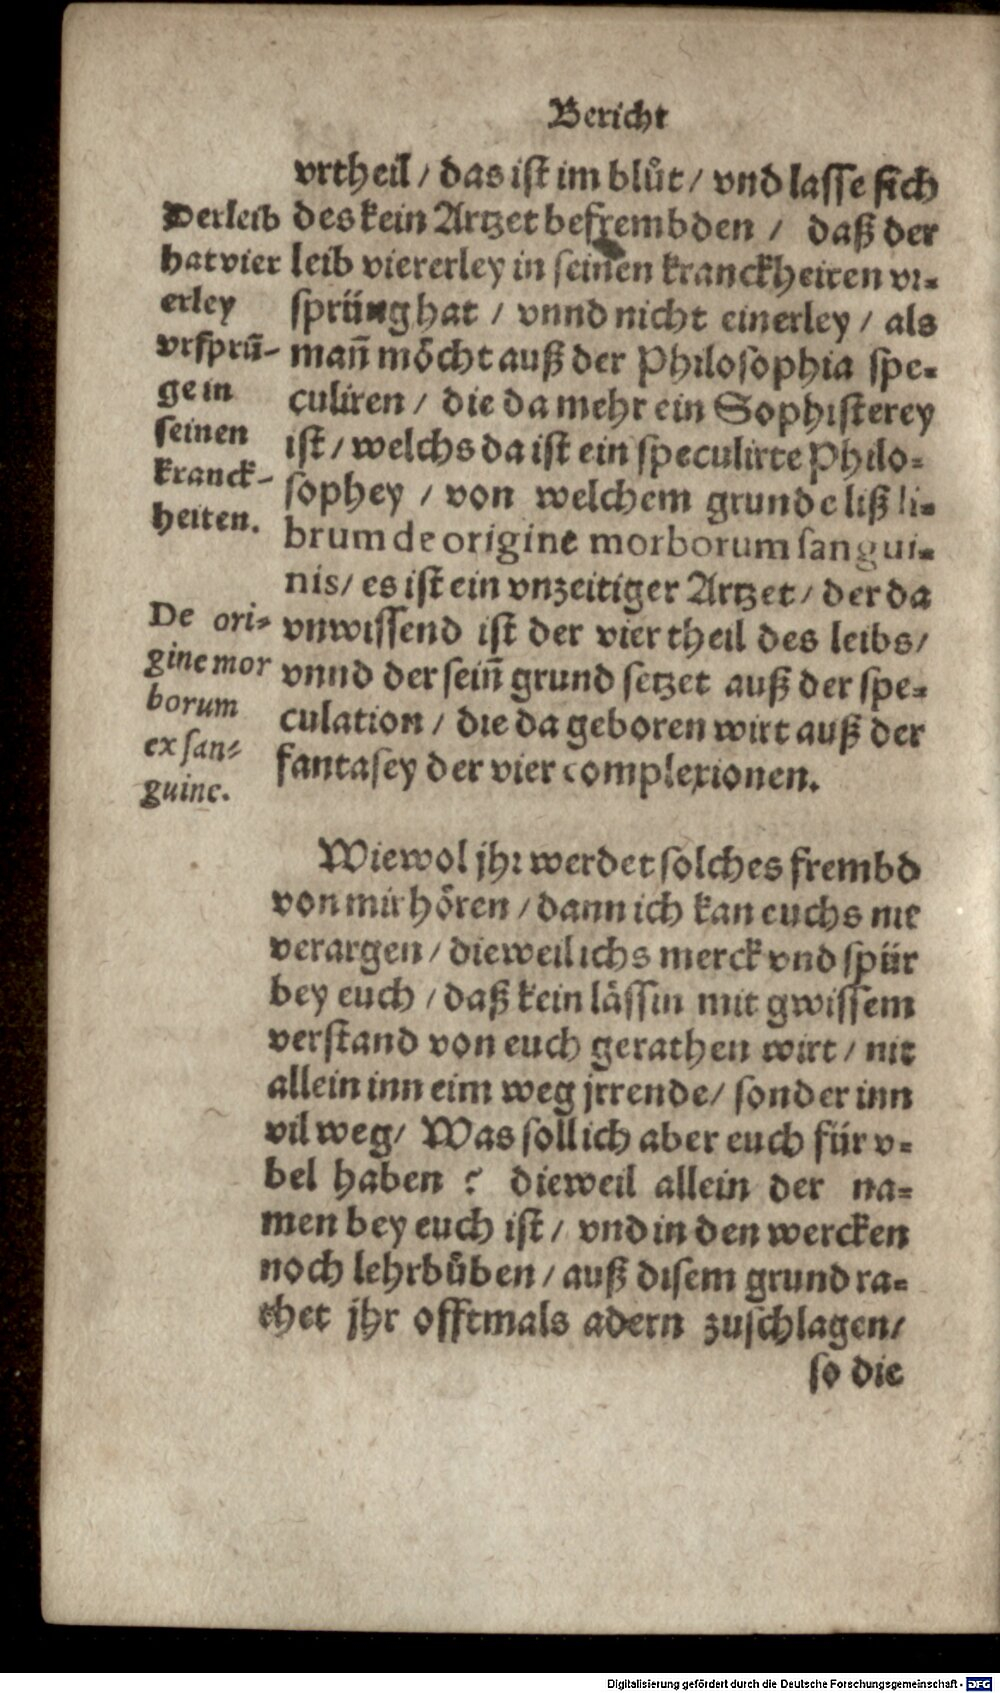 Bericht
vrtheil / das ist im blůt / vnd lasse sich
des kein Artzet befrembden / daß der
leib viererley in seinen kranckheiten vr-
sprüng hat / vnnd nicht einerley / als
mañ möcht auß der Philosophia spe-
culiren / die da mehr ein Sophisterey
ist / welchs da ist ein speculirte Philo-
sophey / von welchem grunde liß li-
brum de origine morborum sangui-
nis / es ist ein vnzeitiger Artzet / der da
vnwissend ist der vier theil des leibs /
vnnd der seiñ grund setzet auß der spe-
culation / die da geboren wirt auß der
fantasey der vier complexionen.
Der leib
hat vier
erley
vrsprü̃-
ge in
seinen
kranck-
heiten.
De ori-
gine mor
borum
ex san-
guine.
Wiewol jhr werdet solches frembd
von mir hören / dann ich kan euchs nit
verargen / dieweil ichs merck vnd spür
bey euch / daß kein lässin mit gwissem
verstand von euch gerathen wirt / nit
allein inn eim weg jrrende / sonder inn
vil weg / Was soll ich aber euch für v-
bel haben ? dieweil allein der na-
men bey euch ist / vnd in den wercken
noch lehrbůben / auß disem grund ra-
thet jhr offtmals adern zuschlagen /
so die
Digitalisierung gefördert durch die Deutsche Forschungsgemeinschaft - DFG